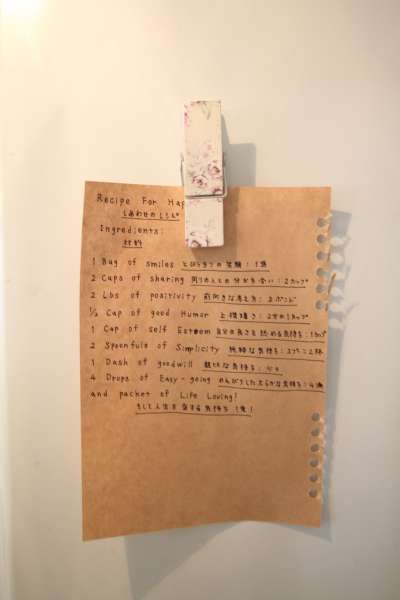 Recipe For Hap
しあわせのレシピ
Ingredients:
材料
1 Bag of smiles とびきりの笑顔:1袋
2 Cups of sharing 周りの人との分かち合い:2カップ
2 Lbs of positivity 前向きな考え方:2ポンド
1/2 Cup of good Humor 上機嫌さ:2分の1カップ
1 Cup of self Esteem 自分の良さを認める気持ち:1カップ
2 Spoonfuls of Simplicity 純粋な気持ち:スプーン2杯
1 Dash of goodwill 親切な気持ち:少々
4 Drops of Easy-going のんびりした大らかな気持ち:4滴
and packet of Life Loving!
そして人生を愛する気持ち 1袋!